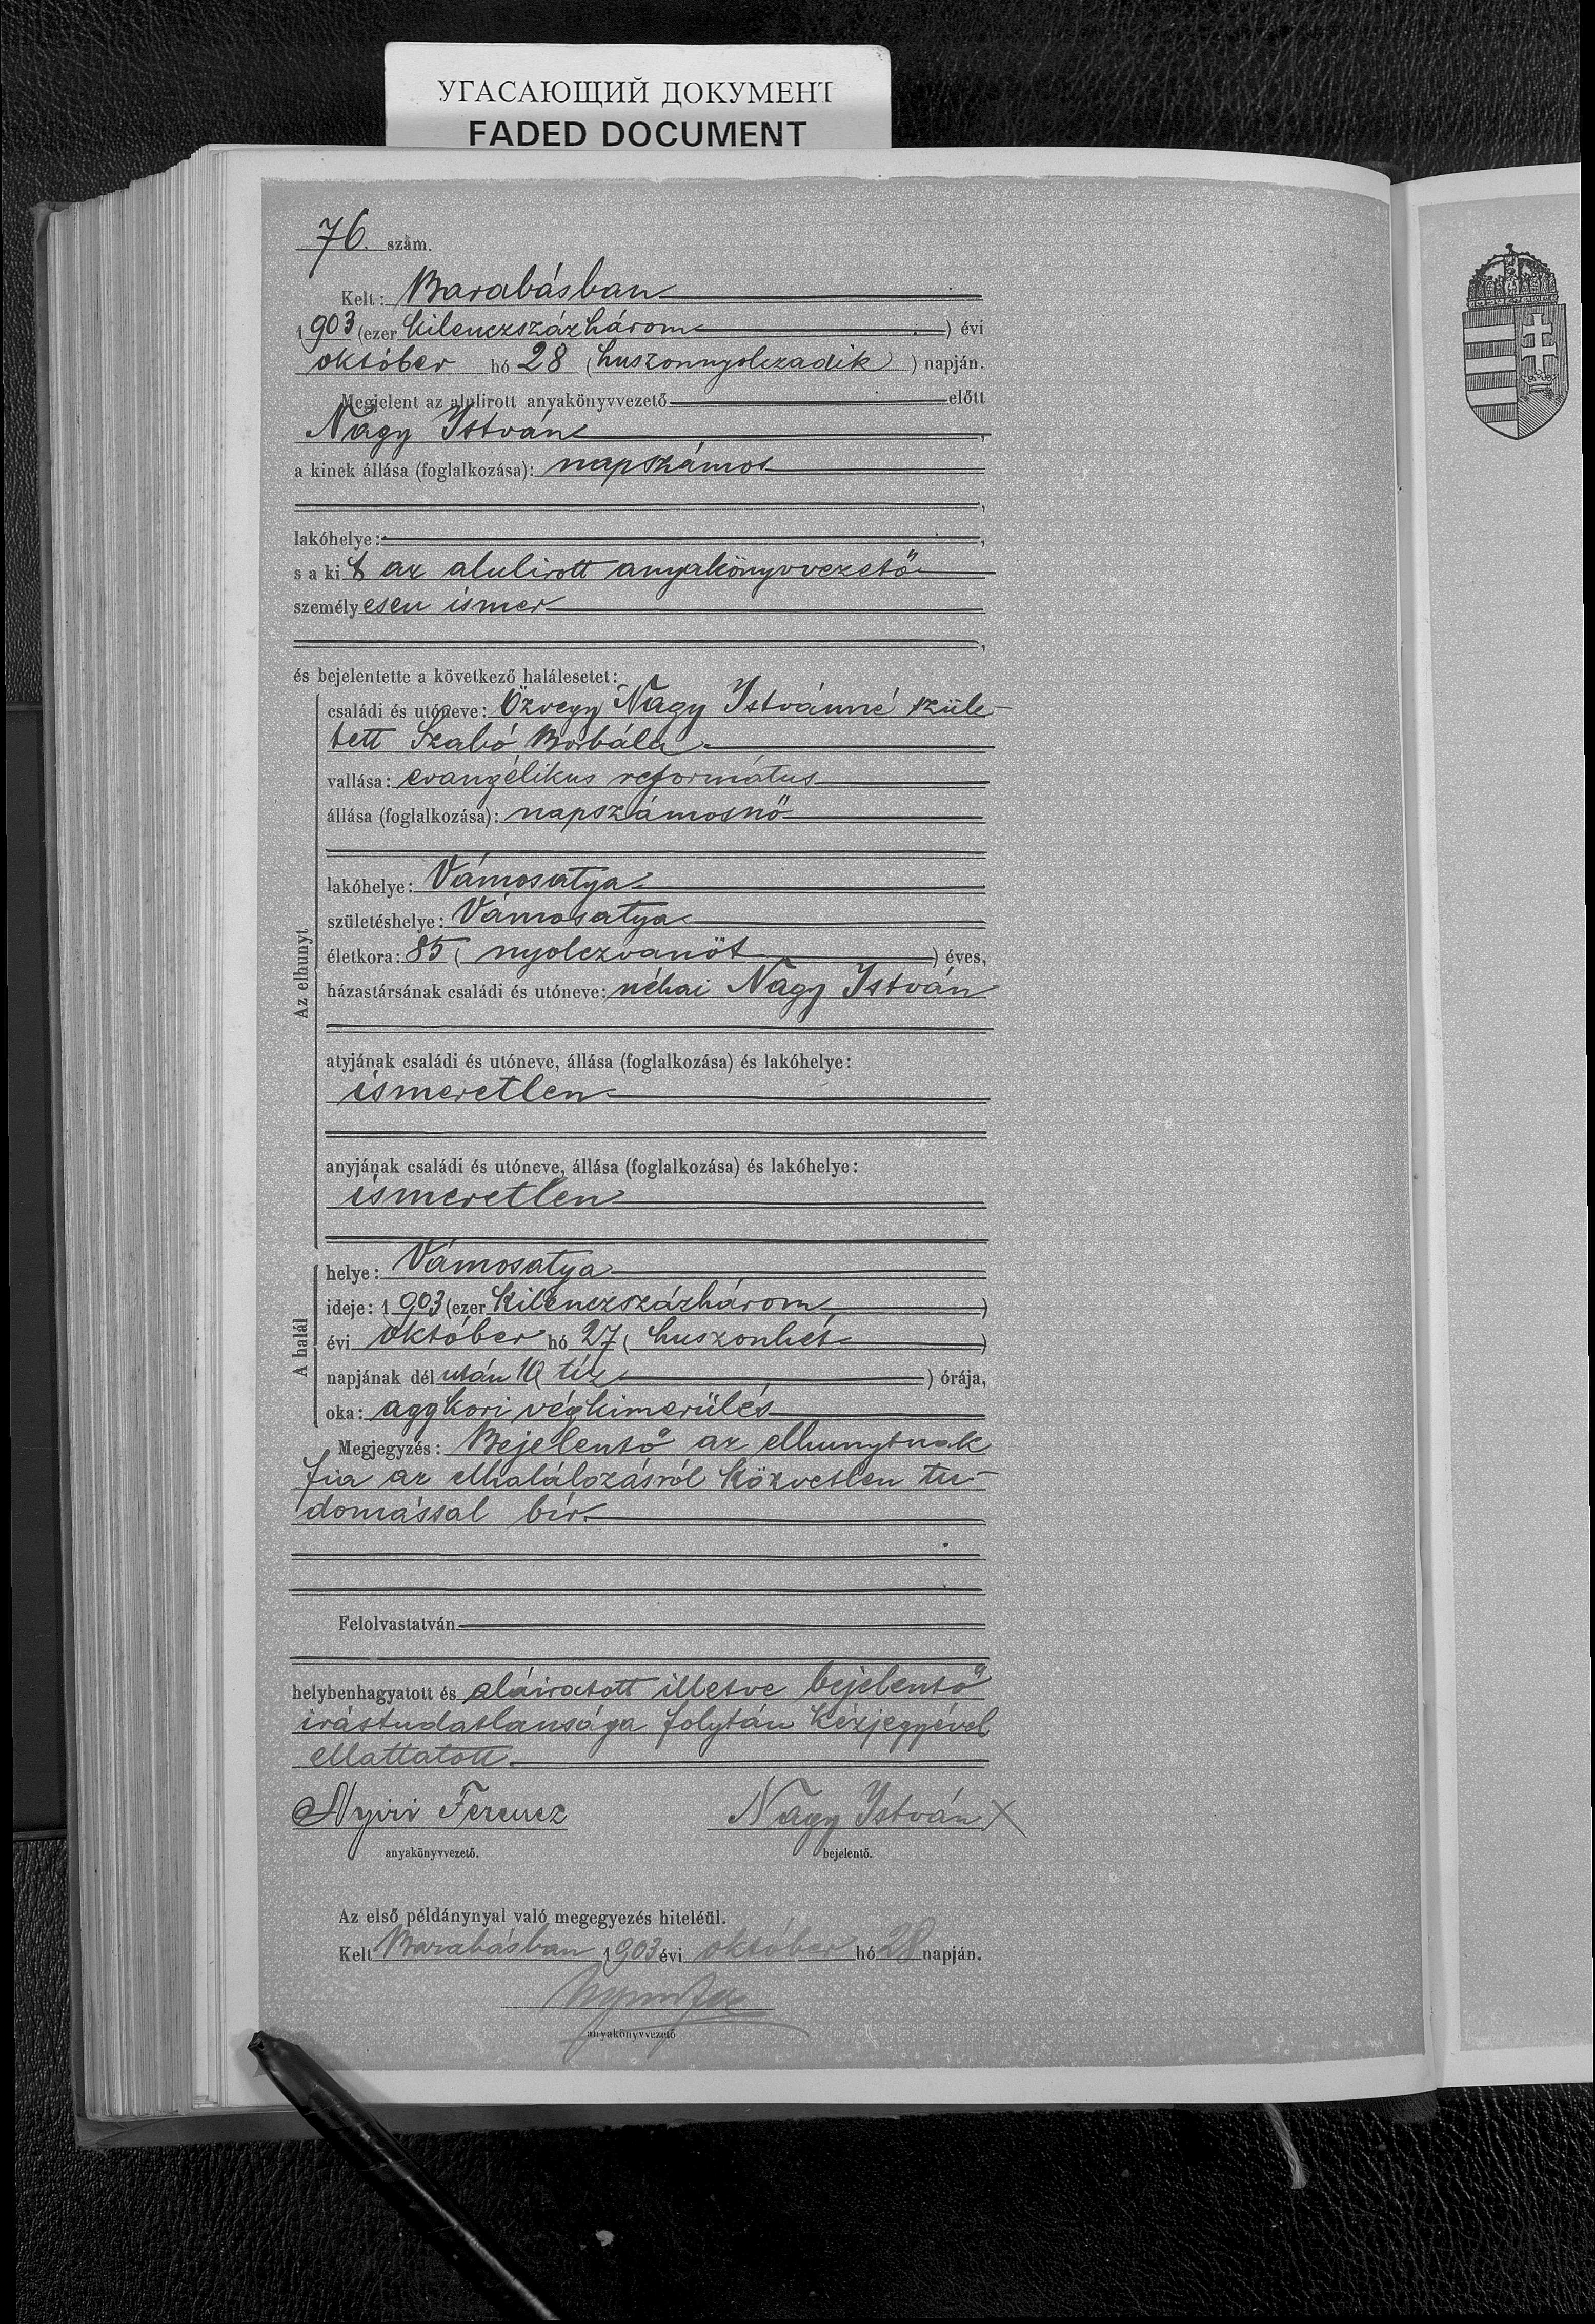 УГАСАЮЩИЙ ДОКУМЕНТ
FADED DOCUMENT
76. szám.
Kelt: Barabásban
1903 (ezer kilenczszázhárom ) évi
október hó 28 (huszonnyolczadik ) napján.
Megjelent az alulirott anyakönyvvezető előtt
Nagy István ,
a kinek állása (foglalkozása): napszámos
,
lakóhelye: ,
s a kit az alulirott anyakönyvvezető
személyesen ismer
,
és bejelentette a következő halálesetet:
családi és utóneve: Özvegy Nagy Istvánné szüle-
tett Szabó Borbála
vallása: evangélikus református
állása (foglalkozása): napszámosnő
lakóhelye: Vámosatya
születéshelye: Vámosatya
életkora: 85 ( nyolczvanöt ) éves,
Az elhunyt
házastársának családi és utóneve: néhai Nagy István
atyjának családi és utóneve, állása (foglalkozása) és lakóhelye:
ismeretlen
anyjának családi és utóneve, állása (foglalkozása) és lakóhelye:
ismeretlen
helye: Vámosatya
ideje: 1903 (ezer kilenczszázhárom )
A halál
évi október hó 27 ( huszonhét )
napjának dél után 10 ( tíz ) órája,
oka: aggkori végkimerülés
Megjegyzés: Bejelentő az elhunytnak
fia az elhalálozásról közvetlen tu-
domással bír.
Felolvastatván
helybenhagyatott és aláiratott illetve bejelentő
irástudatlansága folytán kézjegyével
ellattatott.
Nyiri Ferencz Nagy István X
anyakönyvvezető. bejelentő.
Az első példánynyal való megegyezés hiteléül.
Kelt Barabásban 1903 évi október hó 28 napján.
anyakönyvvezető